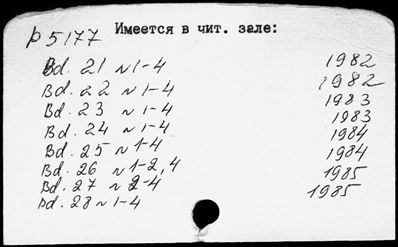 р 5177 Имеется в чит. зале:
Bd. 21 N 1-4 1982
Bd. 22 N 1-4 1982
Bd. 23 N 1-4 1983
Bd. 24 N 1-4 1983
Bd. 25 N 1-4 1984
Bd. 26 N 1-2, 4 1984
Bd. 27 N 2-4 1985
Bd. 28 N 1-4 1985